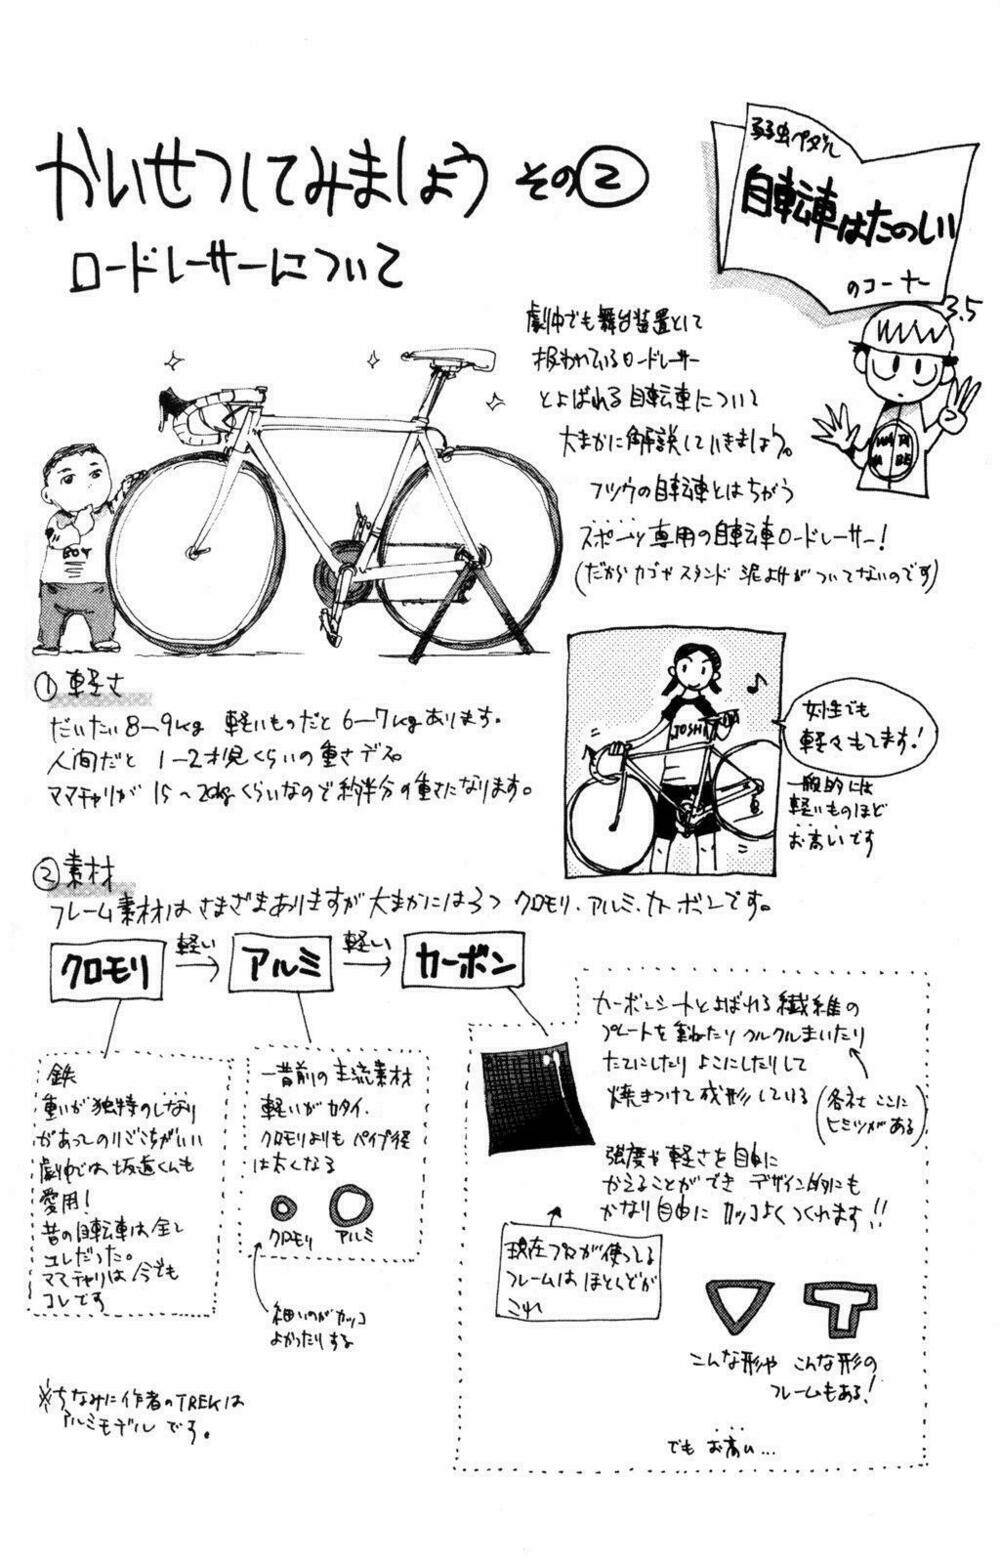 かいせつしてみましょう その②
ロードレーサーについて
弱虫ペダル
自転車はたのしい
のコーナー
3.5
劇中でも舞台装置として
扱われているロードレーサー
とよばれる自転車について
大まかに解説していきましょう。
フツウの自転車とはちがう
スポーツ専用の自転車ロードレーサー!
(だからカゴやスタンド 泥よけがついてないのです)
BOY
①軽さ
だいたい8〜9kg 軽いものだと6〜7kgあります。
人間だと 1〜2才児くらいの重さデス。
ママチャリが15〜20kgくらいなので約半分の重さになります。
JOSHI
女性でも
軽々もてます!
一般的には
軽いものほど
お高いです
②素材
フレーム素材はさまざまありますが大まかには3つ クロモリ、アルミ、カーボンです。
クロモリ
軽い
アルミ
軽い
カーボン
鉄
重いが独特のしなり
があってのりごこちがいい
劇中では坂道くんも
愛用!
昔の自転車は全て
コレだった。
ママチャリは今でも
コレです
一昔前の主流素材
軽いがカタイ、
クロモリよりも パイプ径
は太くなる
クロモリ アルミ
細いのがカッコ
よかったりする
カーボンシートとよばれる繊維の
プレートを重ねたりクルクルまいたり
たてにしたり よこにしたりして
焼きつけて成形している
(各社ここに
ヒミツがある)
強度や軽さを自由に
かえることができ デザイン的にも
かなり自由に カッコよくつくれます!!
現在プロが使ってる
フレームは ほとんどが
これ
こんな形や こんな形の
フレームもある!
でも お高い…
※ちなみに作者のTREKは
アルミモデルです。